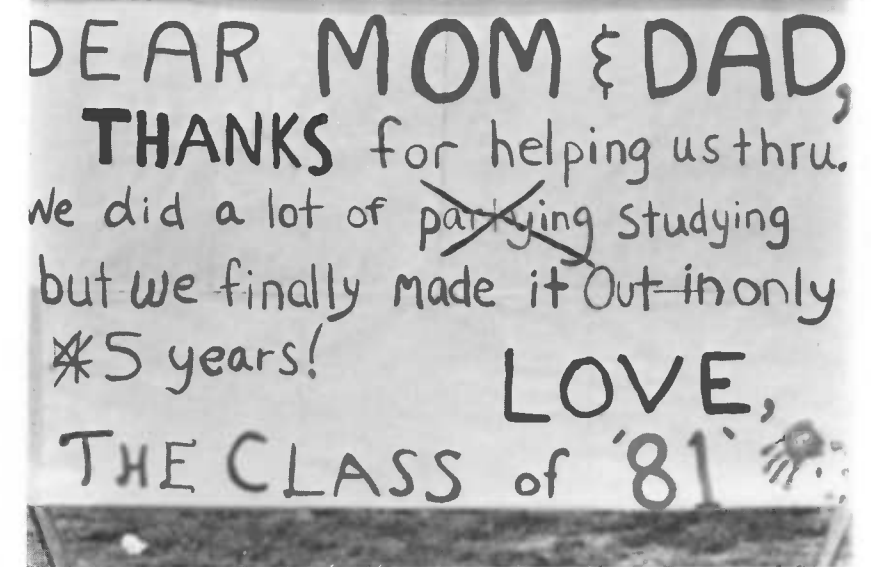 DEAR MOM & DAD,
THANKS for helping us thru.
We did a lot of partying studying
but we finally made it Out in only
5 years!
LOVE,
THE CLASS of '81'